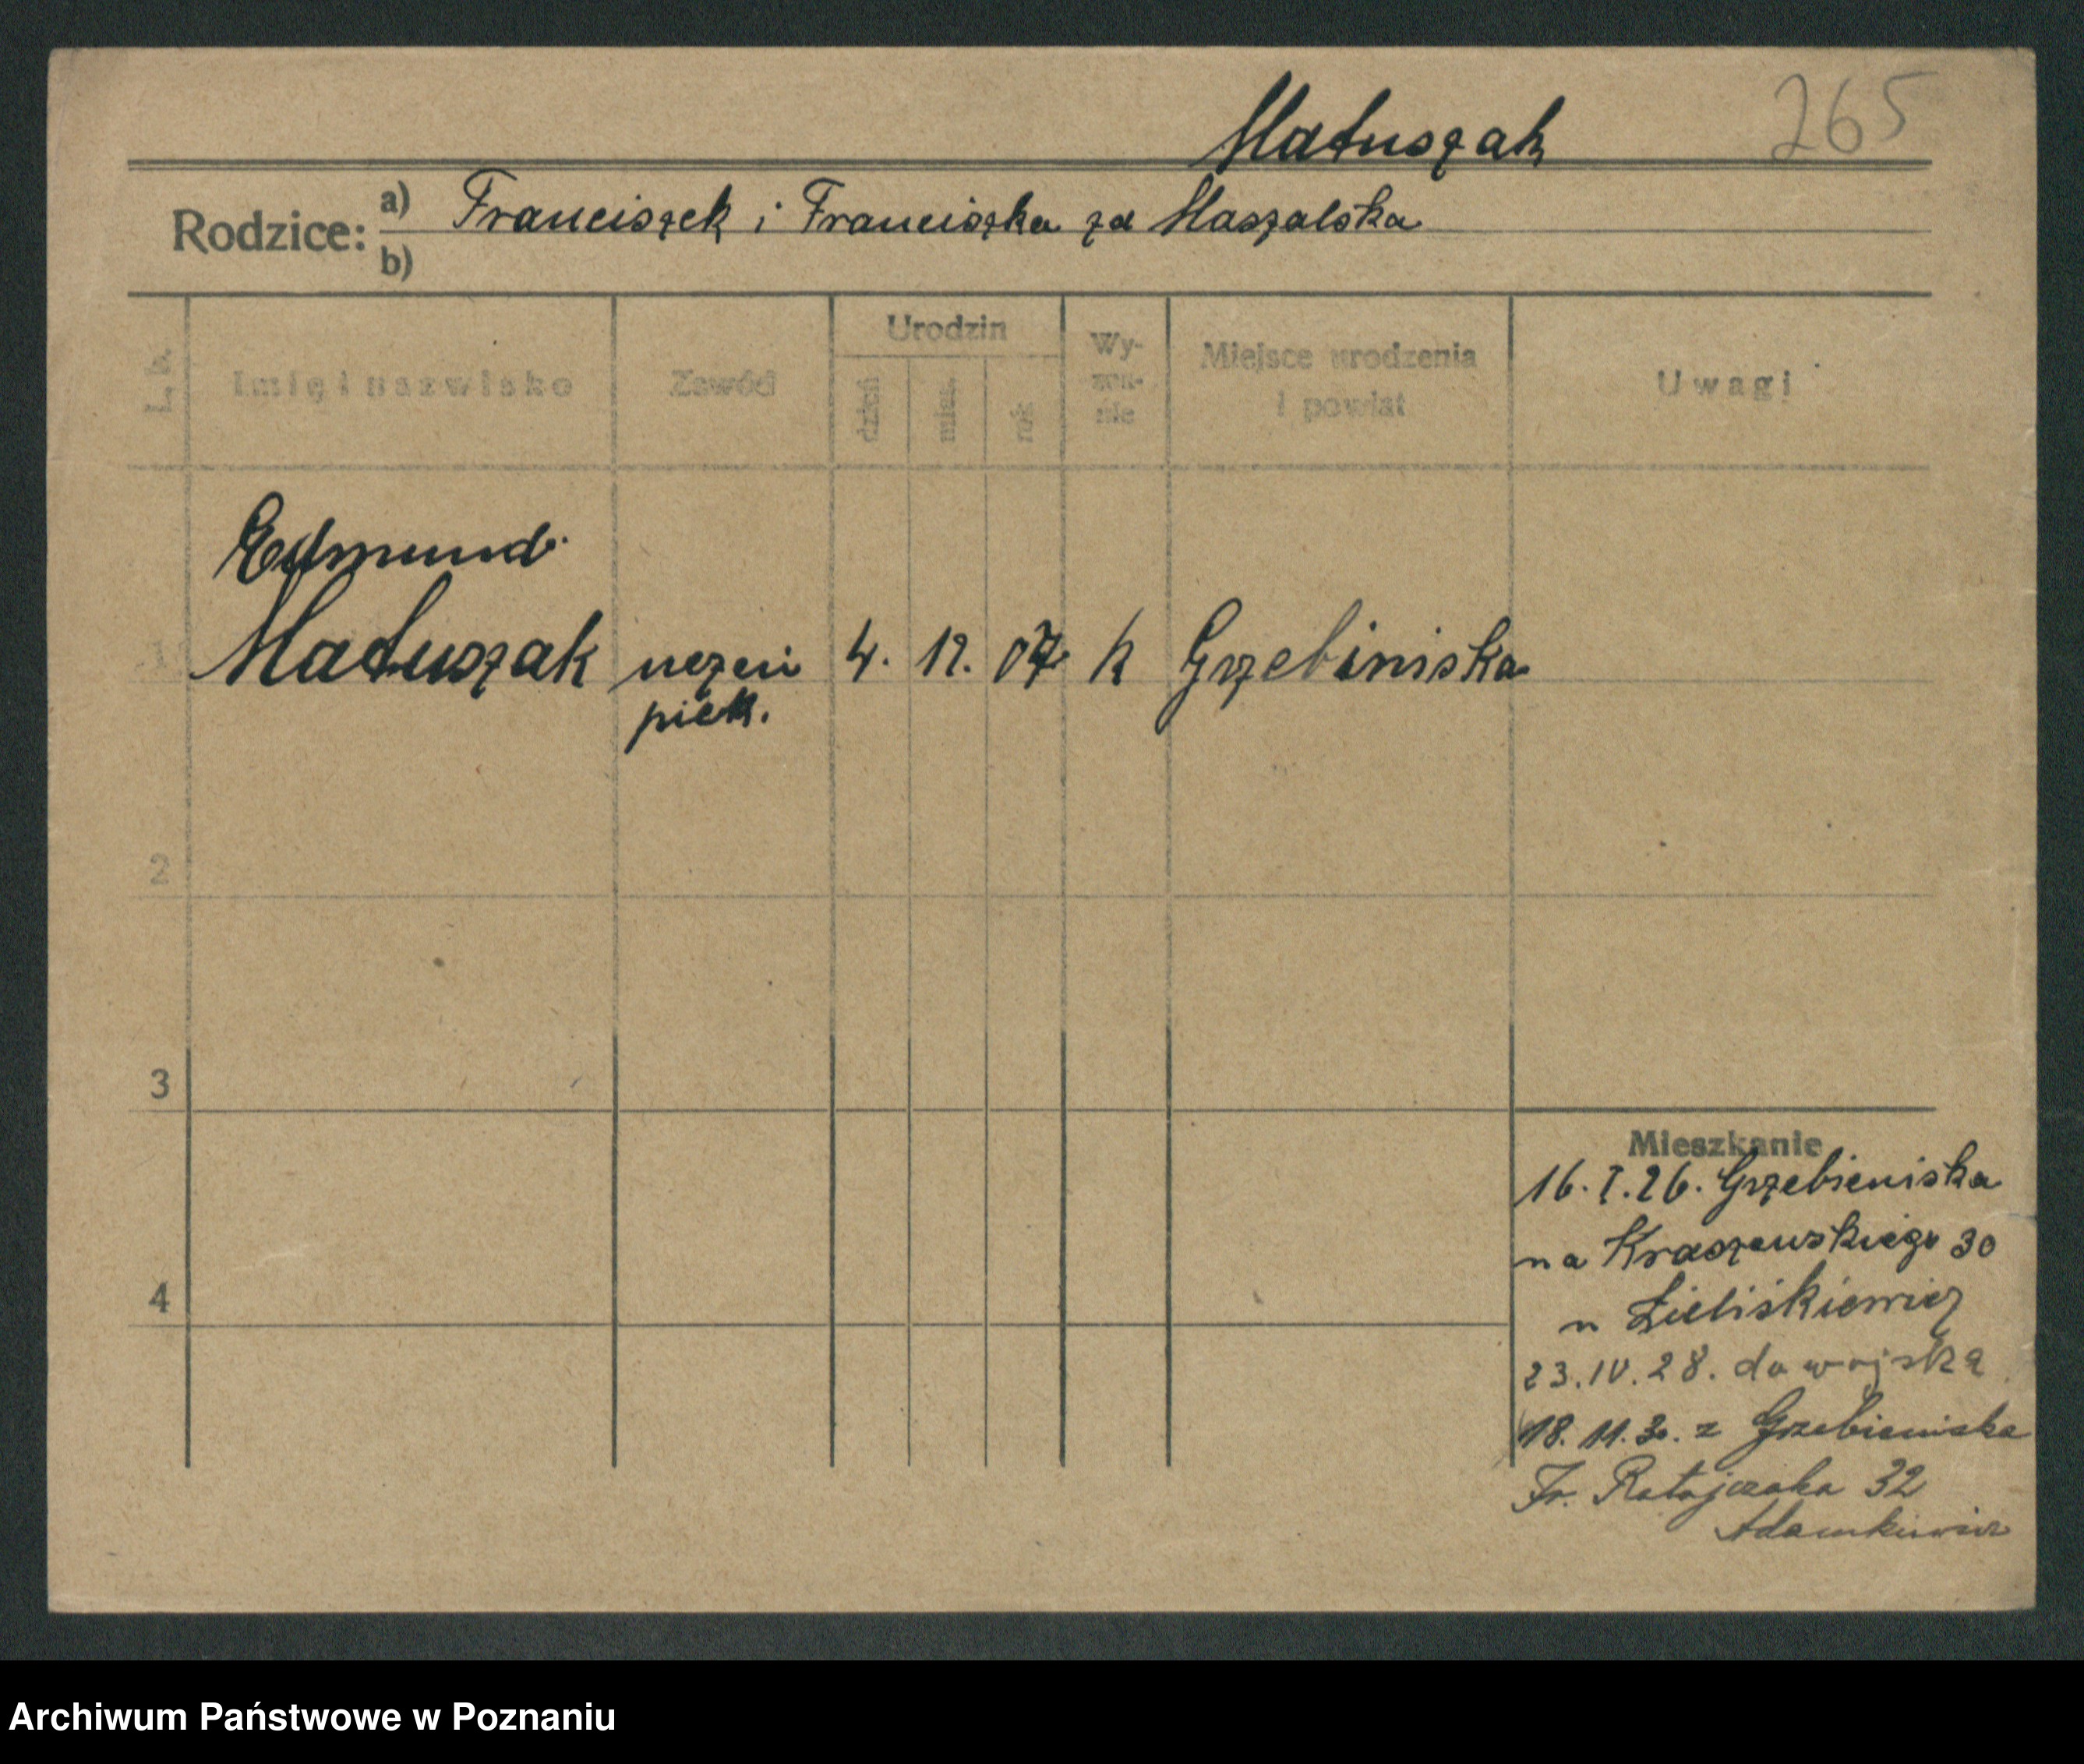 Matuszak 265
Rodzice: a) Franciszek i Franciszka zd Maszalska
b)
L. b. Imię i nazwisko Zawód Urodzin dzień mies. rok Wy-zna-nie Miejsce urodzenia i powiat Uwagi
Edmund
1 Matuszak uczeń 4. 12. 07 k Grzebiniska
piek.
2
3
4
Mieszkanie
16. I. 26. Grzebieniska
na Kraszewskiego 30
u
23. IV. 28. do wojska
18. 11. 30. z Grzebieniska
Fr. Ratajczaka 32
Adamkiewicz
Archiwum Państwowe w Poznaniu